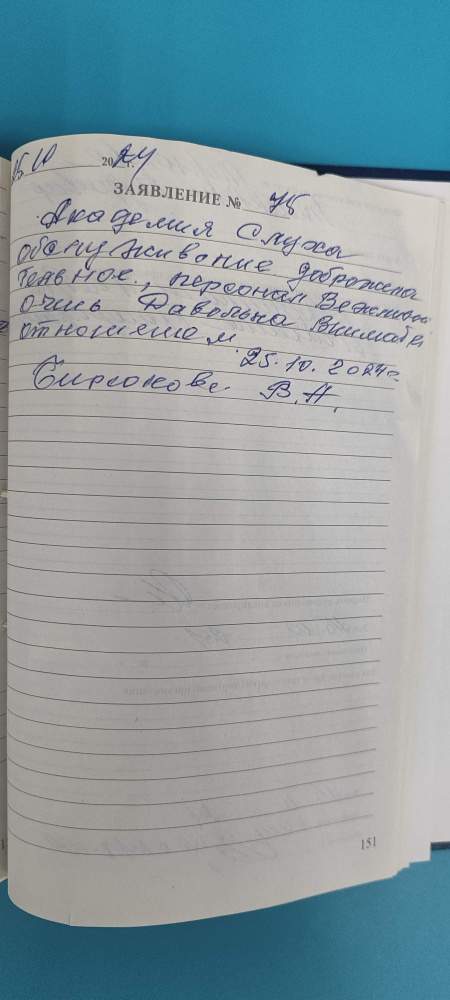 25 10 2024 г.
ЗАЯВЛЕНИЕ № 75
Академия Слуха
обслуживание доброжела
тельное., персонал Вежливый
очинь Давольна Внимате
отношением 25.10.2024г
В.А.
151